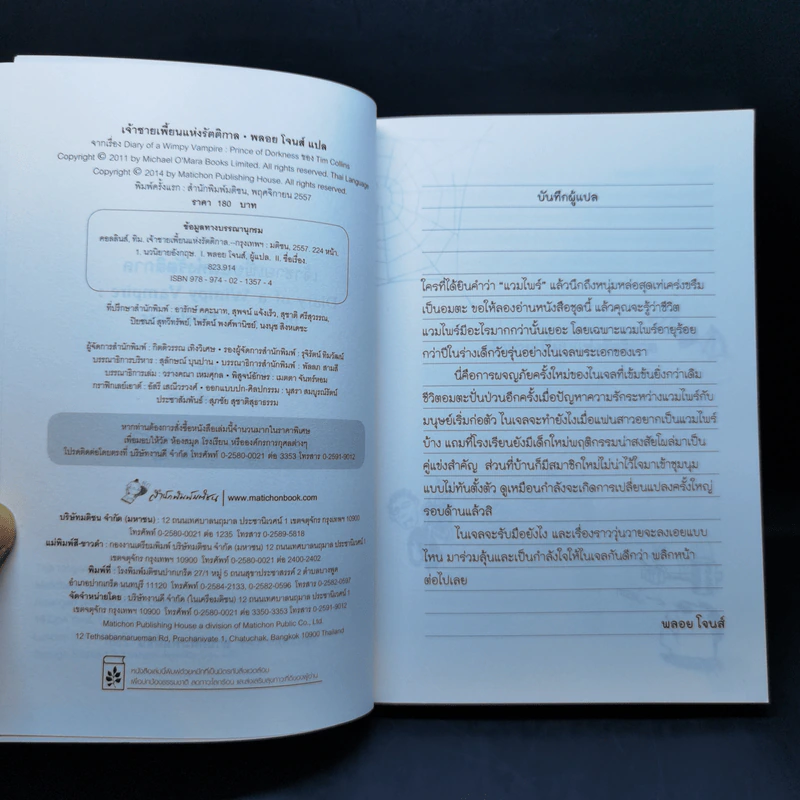 เจ้าชายเพี้ยนแห่งรัตติกาล • พลอย โจนส์ แปล
จากเรื่อง Diary of a Wimpy Vampire : Prince of Dorkness ของ Tim Collins
Copyright © 2011 by Michael O'Mara Books Limited. All rights reserved. Thai Language
Copyright © 2014 by Matichon Publishing House. All rights reserved.
พิมพ์ครั้งแรก : สำนักพิมพ์มติชน, พฤศจิกายน 2557
ราคา 180 บาท
ข้อมูลทางบรรณานุกรม
คอลลินส์, ทิม. เจ้าชายเพี้ยนแห่งรัตติกาล.--กรุงเทพฯ : มติชน, 2557. 224 หน้า.
1. นวนิยายอังกฤษ. I. พลอย โจนส์, ผู้แปล. II. ชื่อเรื่อง.
823.914
ISBN 978 - 974 - 02 - 1357 - 4
ที่ปรึกษาสำนักพิมพ์ : อารักษ์ คคะนาท, สุพจน์ แจ้งเร็ว, สุชาติ ศรีสุวรรณ,
ปิยชนน์ สุทวีทรัพย์, ไพรัตน์ พงศ์พานิชย์, นงนุช สิงหเดชะ
ผู้จัดการสำนักพิมพ์ : กิตติวรรณ เทิงวิเศษ • รองผู้จัดการสำนักพิมพ์ : รุจิรัตน์ ทิมวัฒน์
บรรณาธิการบริหาร : สุลักษณ์ บุนปาน • บรรณาธิการสำนักพิมพ์ : พัลลภ สามสี
บรรณาธิการเล่ม : วรางคณา เหมศุกล • พิสูจน์อักษร : เมตตา จันทร์หอม
กราฟิกเลย์เอาต์ : อัสรี เสณีวรวงศ์ • ออกแบบปก-ศิลปกรรม : นุสรา สมบูรณ์รัตน์
ประชาสัมพันธ์ : สุภชัย สุชาติสุธาธรรม
หากท่านต้องการสั่งซื้อหนังสือเล่มนี้จำนวนมากในราคาพิเศษ
เพื่อมอบให้วัด ห้องสมุด โรงเรียน หรือองค์กรการกุศลต่างๆ
โปรดติดต่อโดยตรงที่ บริษัทงานดี จำกัด โทรศัพท์ 0-2580-0021 ต่อ 3353 โทรสาร 0-2591-9012
สำนักพิมพ์มติชน | www.matichonbook.com
บริษัทมติชน จำกัด (มหาชน) : 12 ถนนเทศบาลนฤมาล ประชานิเวศน์ 1 เขตจตุจักร กรุงเทพฯ 10900
โทรศัพท์ 0-2580-0021 ต่อ 1235 โทรสาร 0-2589-5818
แม่พิมพ์สี-ขาวดำ : กองงานเตรียมพิมพ์ บริษัทมติชน จำกัด (มหาชน) 12 ถนนเทศบาลนฤมาล ประชานิเวศน์ 1
เขตจตุจักร กรุงเทพฯ 10900 โทรศัพท์ 0-2580-0021 ต่อ 2400-2402
พิมพ์ที่ : โรงพิมพ์มติชนปากเกร็ด 27/1 หมู่ 5 ถนนสุขาประชาสรรค์ 2 ตำบลบางพูด
อำเภอปากเกร็ด นนทบุรี 11120 โทรศัพท์ 0-2584-2133, 0-2582-0596 โทรสาร 0-2582-0597
จัดจำหน่ายโดย : บริษัทงานดี จำกัด (ในเครือมติชน) 12 ถนนเทศบาลนฤมาล ประชานิเวศน์ 1
เขตจตุจักร กรุงเทพฯ 10900 โทรศัพท์ 0-2580-0021 ต่อ 3350-3353 โทรสาร 0-2591-9012
Matichon Publishing House a division of Matichon Public Co., Ltd.
12 Tethsabannarueman Rd, Prachanivate 1, Chatuchak, Bangkok 10900 Thailand
หนังสือเล่มนี้พิมพ์ด้วยหมึกที่เป็นมิตรกับสิ่งแวดล้อม
เพื่อปกป้องธรรมชาติ ลดภาวะโลกร้อน และส่งเสริมสุขภาวะที่ดีของผู้อ่าน
บันทึกผู้แปล
ใครที่ได้ยินคำว่า “แวมไพร์” แล้วนึกถึงหนุ่มหล่อสุดเท่เคร่งขรึม
เป็นอมตะ ขอให้ลองอ่านหนังสือชุดนี้ แล้วคุณจะรู้ว่าชีวิต
แวมไพร์มีอะไรมากกว่านั้นเยอะ โดยเฉพาะแวมไพร์อายุร้อย
กว่าปีในร่างเด็กวัยรุ่นอย่างไนเจลพระเอกของเรา
นี่คือการผจญภัยครั้งใหม่ของไนเจลที่เข้มข้นยิ่งกว่าเดิม
ชีวิตอมตะปั่นป่วนอีกครั้งเมื่อปัญหาความรักระหว่างแวมไพร์กับ
มนุษย์เริ่มก่อตัว ไนเจลจะทำยังไงเมื่อแฟนสาวอยากเป็นแวมไพร์
บ้าง แถมที่โรงเรียนยังมีเด็กใหม่พฤติกรรมน่าสงสัยโผล่มาเป็น
คู่แข่งสำคัญ ส่วนที่บ้านก็มีสมาชิกใหม่ไม่น่าไว้ใจมาเข้าชุมนุม
แบบไม่ทันตั้งตัว ดูเหมือนกำลังจะเกิดการเปลี่ยนแปลงครั้งใหญ่
รอบด้านแล้วสิ
ไนเจลจะรับมือยังไง และเรื่องราววุ่นวายจะลงเอยแบบ
ไหน มาร่วมลุ้นและเป็นกำลังใจให้ไนเจลกันดีกว่า พลิกหน้า
ต่อไปเลย
พลอย โจนส์